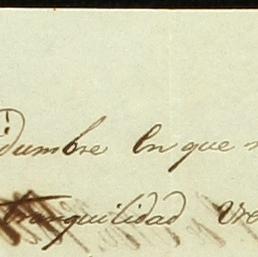 dumbre en que
tranquilidad